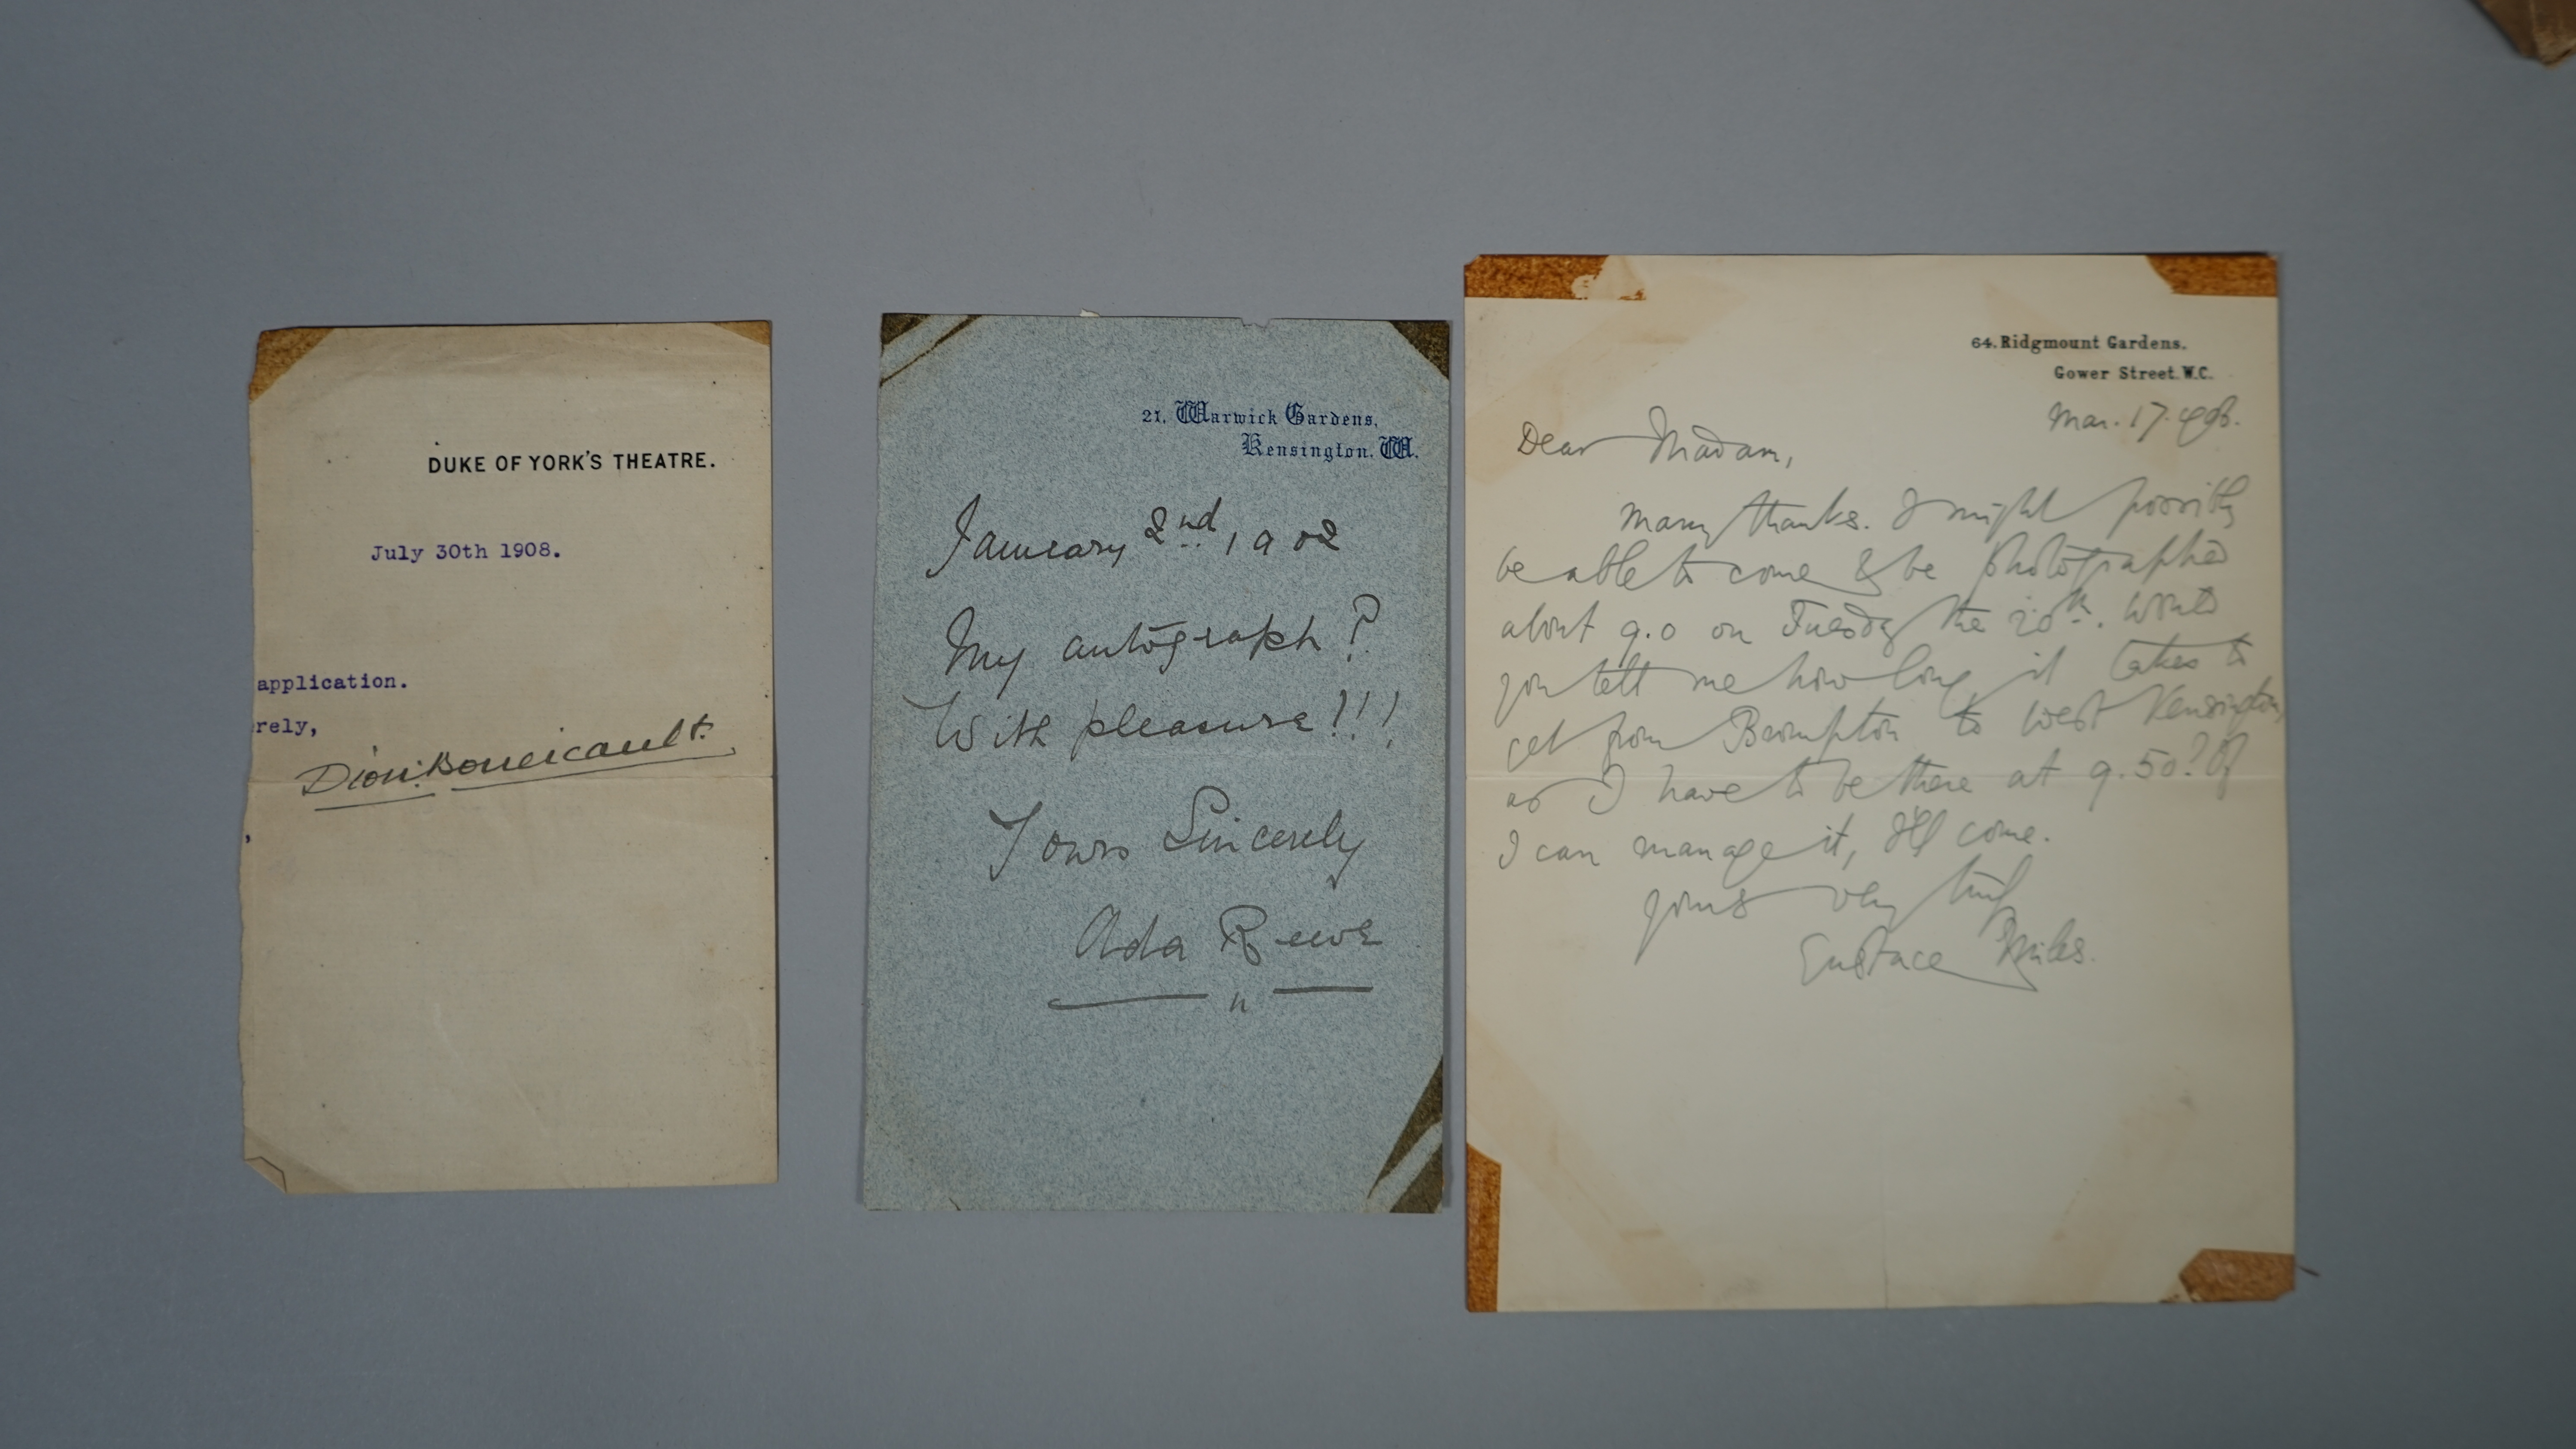 DUKE OF YORK'S THEATRE.
July 30th 1908.
application.
rely,
Dion. Boucicault.
,
21, Warwick Gardens,
Kensington. W.
January 2nd, 1902
My autograph?
With pleasure!!!
Yours Sincerely
Ada Reeve
64. Ridgmount Gardens.
Gower Street. W.C.
Mar. 17.
Dear Madam,
Many thanks. I might possibly
be able to come & be photographed
about 9.0 on Tuesday the 20th. Would
you tell me how long it takes to
get from Brompton to West Kensington,
as I have to be there at 9.50? If
I can manage it, I'll come.
yours very truly
Eustace Miles.